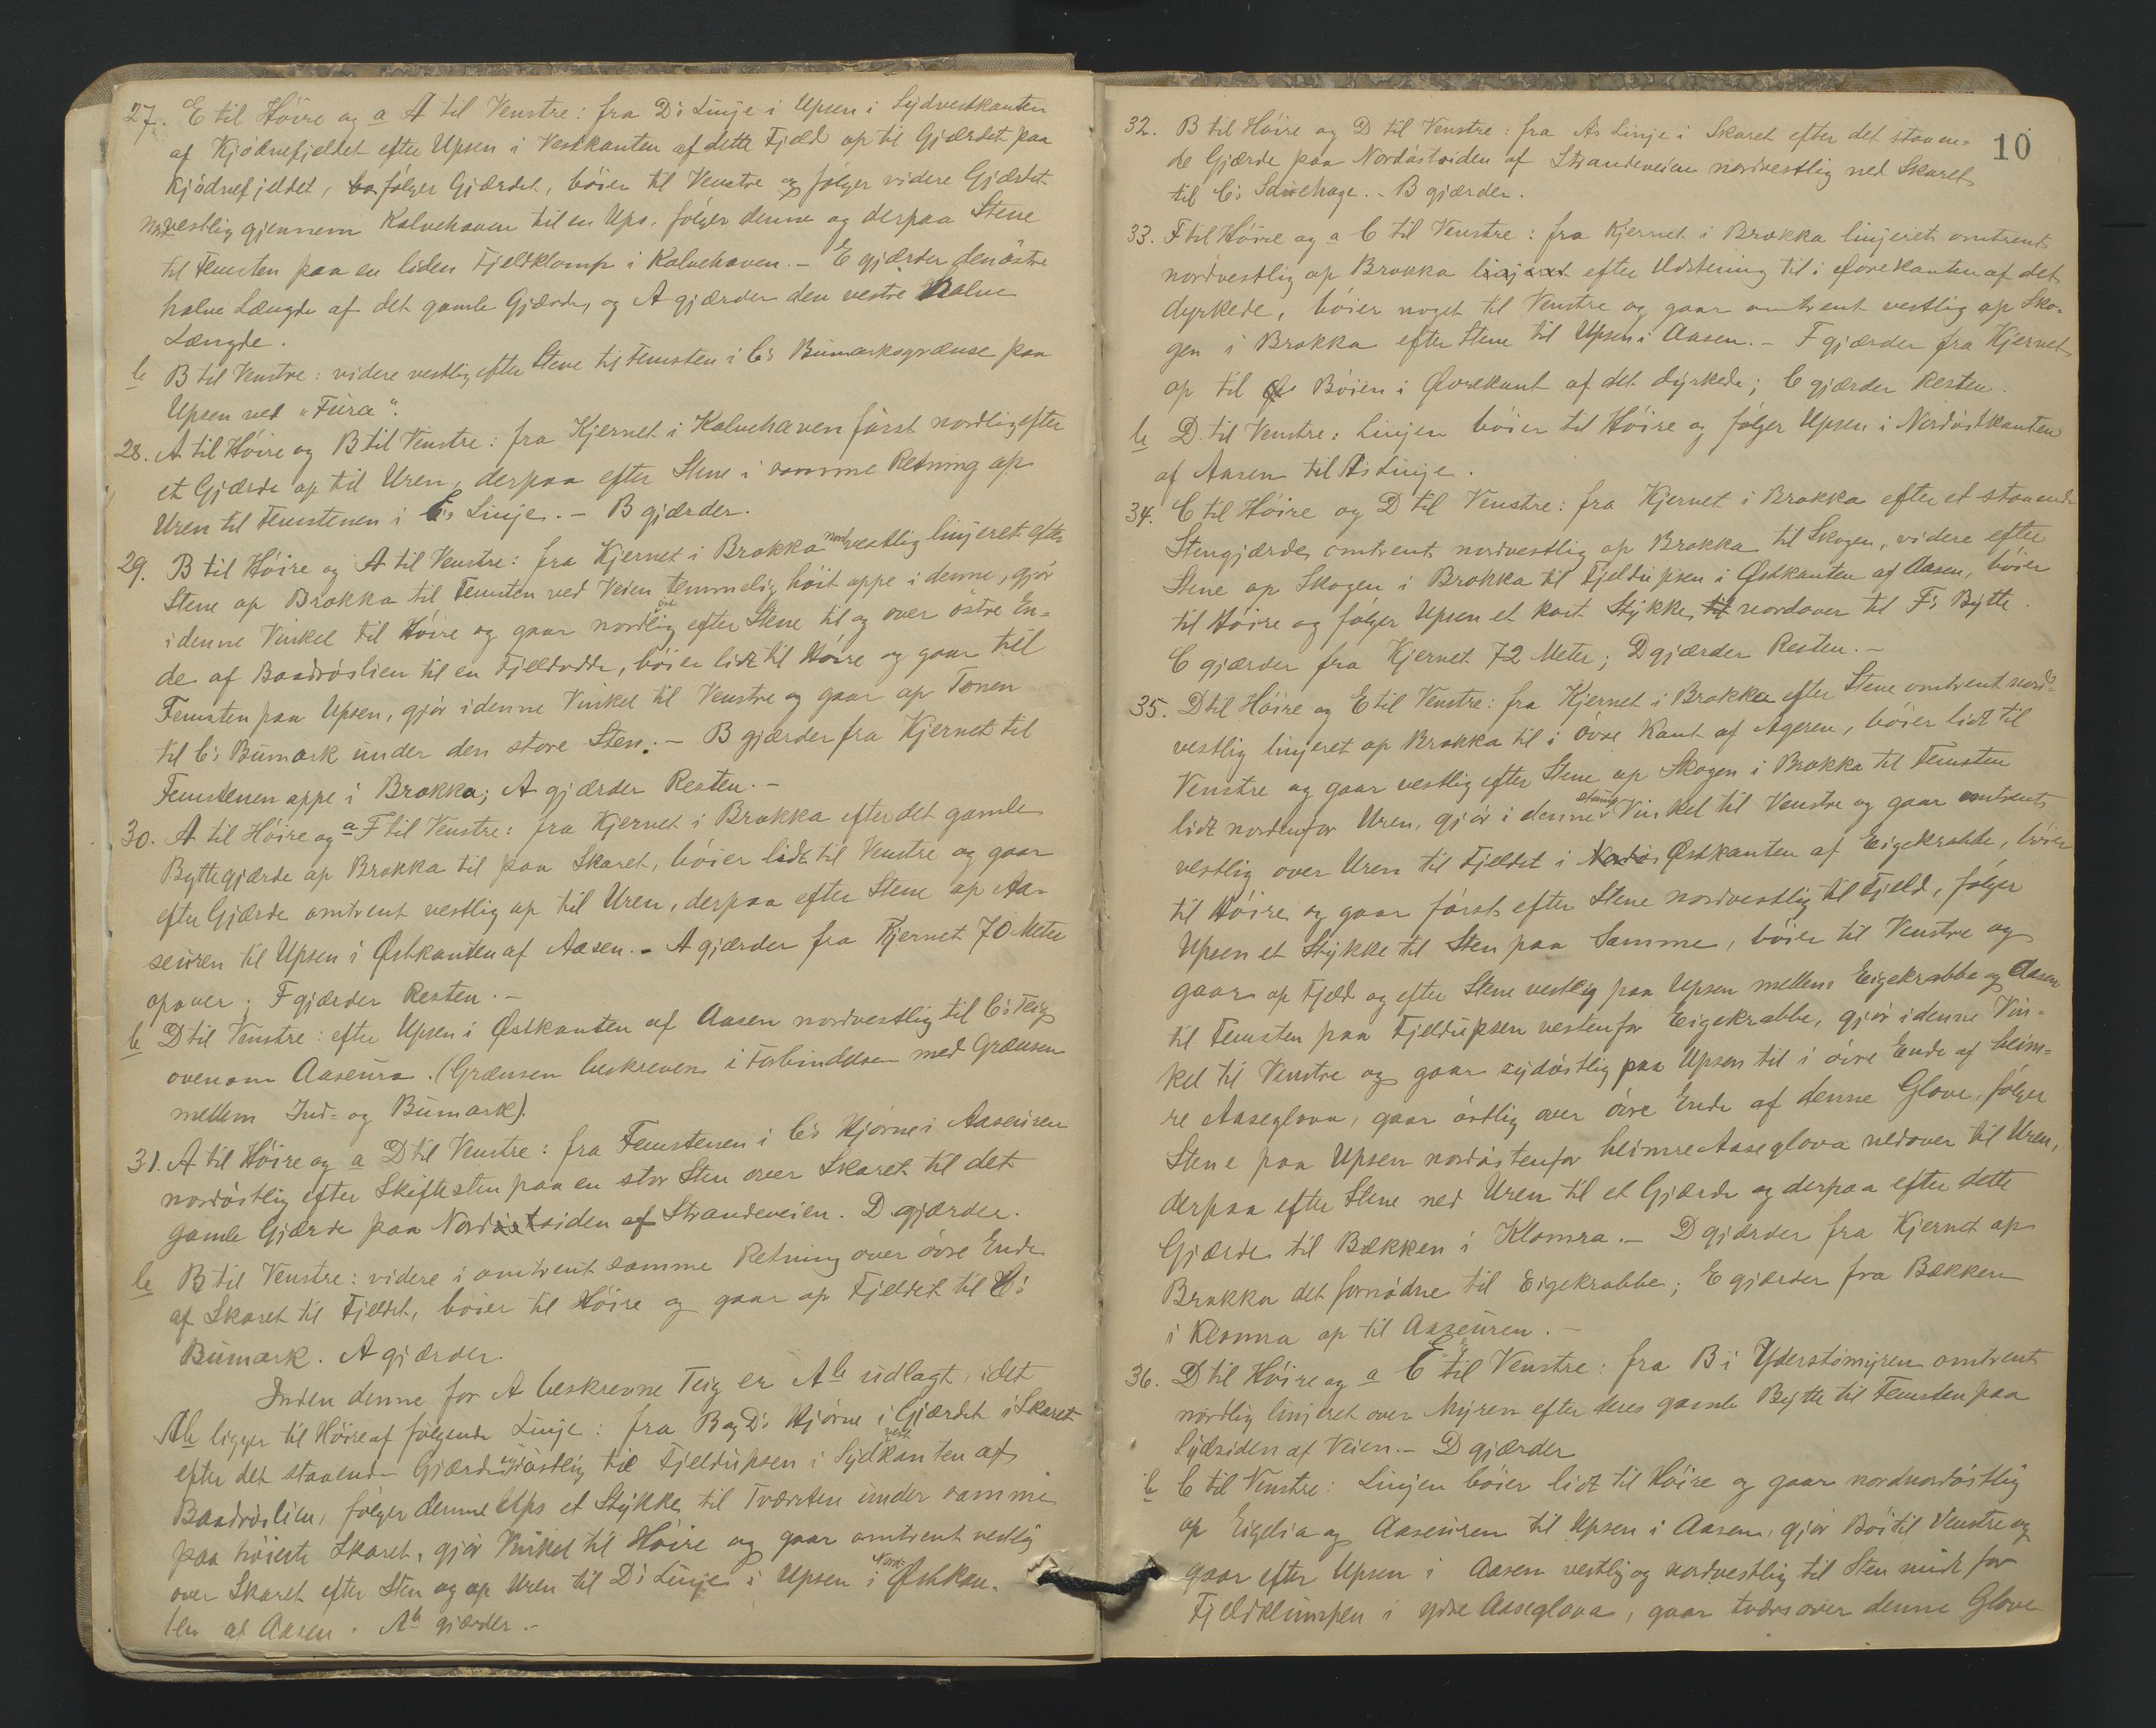 27. E til Höire og a A til Venstre: fra D's Linje i Upsen i Sydvestkanten
af Kjödnefjeldet efter Upsen i Vestkanten af dette Fjeld op til Gjærdet paa
Kjödnefjeldet, følger Gjærdet, böier til Venstre og følger videre Gjærdet
nordvestlig gjennem Kalvehaven til en Ups, følger denne og derpaa Stene
til Femsten paa en liden Fjeldklomp i Kalvehaven. - E gjærder den östre
halve Længde af det gamle Gjærde, og A gjærder den vestre halve
Længde.
b B til Venstre: videre vestlig efter Stene til Femsten i C's Bumarksgrænse paa
Upsen ved "Fura".
28. A til Höire og B til Venstre: fra Kjernet i Kalvehaven först nordlig efter
et Gjærde op til Uren, derpaa efter Stene i samme Retning op
Uren til Femstenen i C's Linje. - B gjærder.
29. B til Höire og A til Venstre: fra Kjernet i Brokka nordvestlig linjeret efter
Stene op Brokka til Femsten ved Veien temmelig höit oppe i denne, gjör
i denne Vinkel til Höire og gaar nordlig efter Stene til og over östre En-
de af Baadröslien til en Fjeldodde, böier lidt til Höire og gaar til
Femsten paa Upsen, gjör i denne Vinkel til Venstre og gaar op Tonen
til C's Bumark under den store Sten. - B gjærder fra Kjernet til
Femstenen oppe i Brokka; A gjærder Resten. -
30. A til Höire og a F til Venstre: fra Kjernet i Brokka efter det gamle
Byttegjærde op Brokka til paa Skaret, böier lidt til Venstre og gaar
efter Gjærde omtrent vestlig op til Uren, derpaa efter Stene op Aa-
seuren til Upsen i Østkanten af Aasen. - A gjærder fra Kjernet 70 Meter
opover; F gjærder Resten. -
b D til Venstre: efter Upsen i Østkanten af Aasen nordvestlig til C's Teig
ovenom Aaseura. (Grænsen beskreven i Forbindelse med Grænsen
mellem Ind- og Bumark).
31. A til Höire og a D til Venstre: fra Femstenen i C's Hjörne i Aaseuren
nordöstlig efter Skiftesten paa en stor Sten over Skaret til det
gamle Gjærde paa Nordöstsiden af Strandeveien. D gjærder.
b B til Venstre: videre i omtrent samme Retning over övre Ende
af Skaret til Fjeldet, böier til Höire og gaar op Fjeldet til C's
Bumark. A gjærder.
Inden denne for A beskrevne Teig er Ab udlagt, idet
Ab ligger til Höire af følgende Linje: fra B og D's Hjörne i Gjærdet i Skaret
efter det staaende Gjærde sydöstlig til Fjeldupsen i Sydvestkanten af
Baadröslien, følger denne Ups et Stykke til Tværsten under samme
paa höieste Skaret, gjör Vinkel til Höire og gaar omtrent vestlig
over Skaret efter Sten og op Uren til D's Linje i Upsen i Nordöstkan-
ten af Aasen. Ab gjærder. -
10
32. B til Höire og D til Venstre: fra A's Linje i Skaret efter det staaen-
de Gjærde paa Nordöstsiden af Strandeveien nordvestlig ned Skaret
til C's Sauehage. - B gjærder.
33. F til Höire og a C til Venstre: fra Kjernet i Brokka linjeret omtrent
nordvestlig op Brokka linjeret efter Udstening til i Øvrekanten af det
dyrkede, böier noget til Venstre og gaar omtrent vestlig op Sko-
gen i Brokka efter Stene til Upsen i Aasen. - F gjærder fra Kjernet
op til Böien i Øvrekant af det dyrkede; C gjærder Resten.
b D til Venstre: Linjen böier til Höire og følger Upsen i Nordöstkanten
af Aasen til A's Linje.
34. C til Höire og D til Venstre: fra Kjernet i Brokka efter et staaende
Stengjærde omtrent nordvestlig op Brokka til Skogen, videre efter
Stene op Skogen i Brokka til Fjeldupsen i Østkanten af Aasen, böier
til Höire og følger Upsen et kort Stykke til nordover til F's Bytte.
C gjærder fra Kjernet 72 Meter; D gjærder Resten. -
35. D til Höire og E til Venstre: fra Kjernet i Brokka efter Stene omtrent nord-
vestlig linjeret op Brokka til i övre Kant af Ageren, böier lidt til
Venstre og gaar vestlig efter Stene op Skogen i Brokka til Femsten
lidt nordenfor Uren, gjör i denne stump Vinkel til Venstre og gaar omtrent
vestlig over Uren til Fjeldet i Østkanten af Eigekrabbe, böier
til Höire og gaar först efter Stene nordvestlig til Fjeld, følger
Upsen et Stykke til Sten paa Samme, böier til Venstre og
gaar op Fjeld og efter Stene vestlig paa Upsen mellem Eigekrabbe og Aasen
til Femsten paa Fjeldupsen vestenfor Eigekrabbe, gjör i denne Vin-
kel til Venstre og gaar sydöstlig paa Upsen til i övre Ende af heim-
re Aaseglova, gaar östlig over övre Ende af denne Glove, følger
Stene paa Upsen nordöstenfor heimre Aaseglova nedover til Uren,
derpaa efter Stene ned Uren til et Gjærde og derpaa efter dette
Gjærde til Bækken i Klomra. - D gjærder fra Kjernet op
Brokka det fornødne til Eigekrabbe; E gjærder fra Bækken
i Klomra op til Aaseuren. -
36. D til Höire og a C til Venstre: fra B i Yderstömyren omtrent
nordlig linjeret over Myren efter deres gamle Bytte til Femsten paa
Sydsiden af Veien. - D gjærder
b C til Venstre: Linjen böier lidt til Höire og gaar nordnordöstlig
op Eigelia og Aaseuren til Upsen i Aasen, gjör Böi til Venstre og
gaar efter Upsen i Aasen vestlig og nordvestlig til Sten midt for
Fjeldklumpen i ydre Aaseglova, gaar tværs over denne Glove